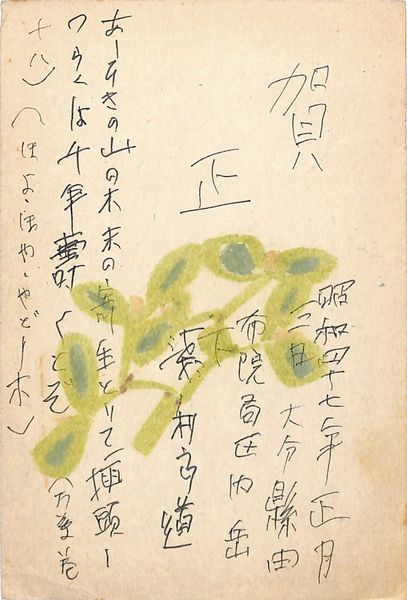 賀
正
昭和四十七年正月
三日 大分縣由
布院局区内岳
下
村 道
あしひきの山の木末の寄生とりて插頭し
つらくは千年壽くとぞ（万葉巻
十八）（ほよ・ほや・やどり木）